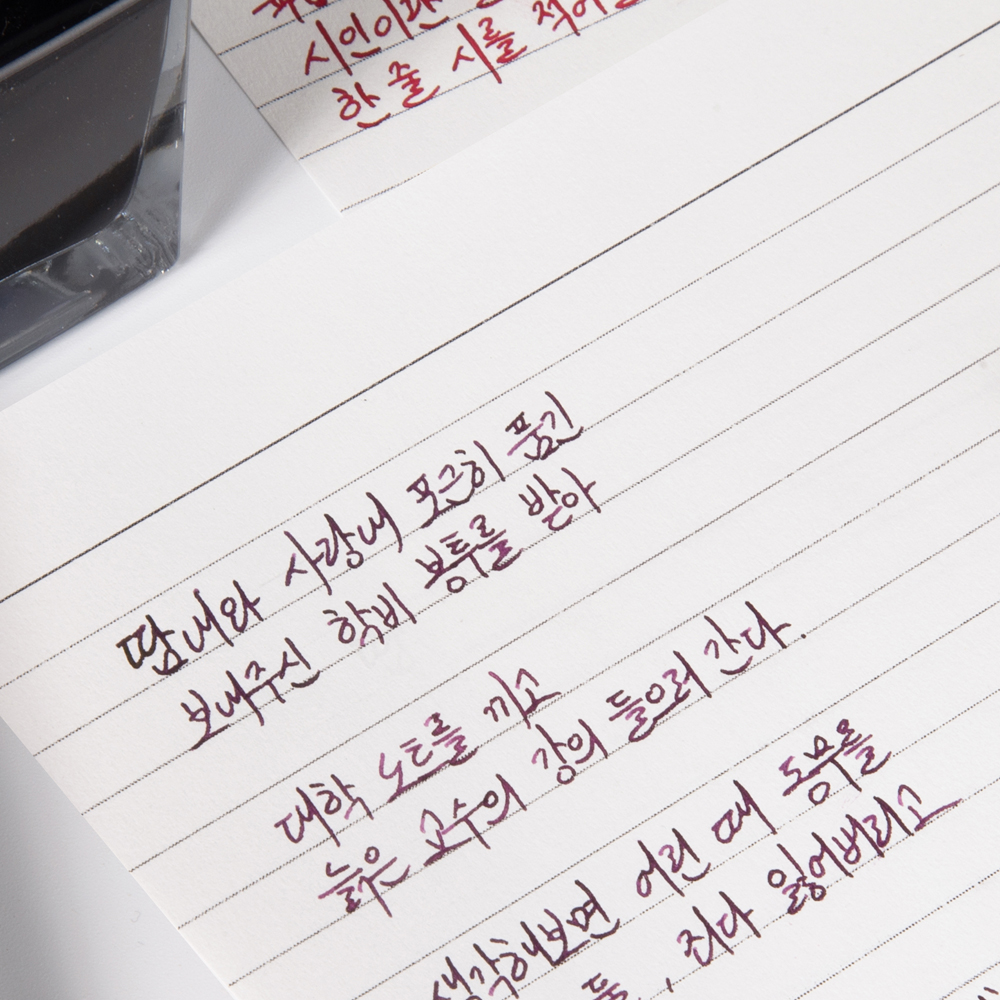 시인이란
한 줄 시를
땀내와 사랑내 포근히 품긴
보내주신 학비 봉투를 받아
대학 노트를 끼고
늙은 교수의 강의 들으러 간다.
생각해보면 어린 때 동무를
, 죄다 잃어버리고